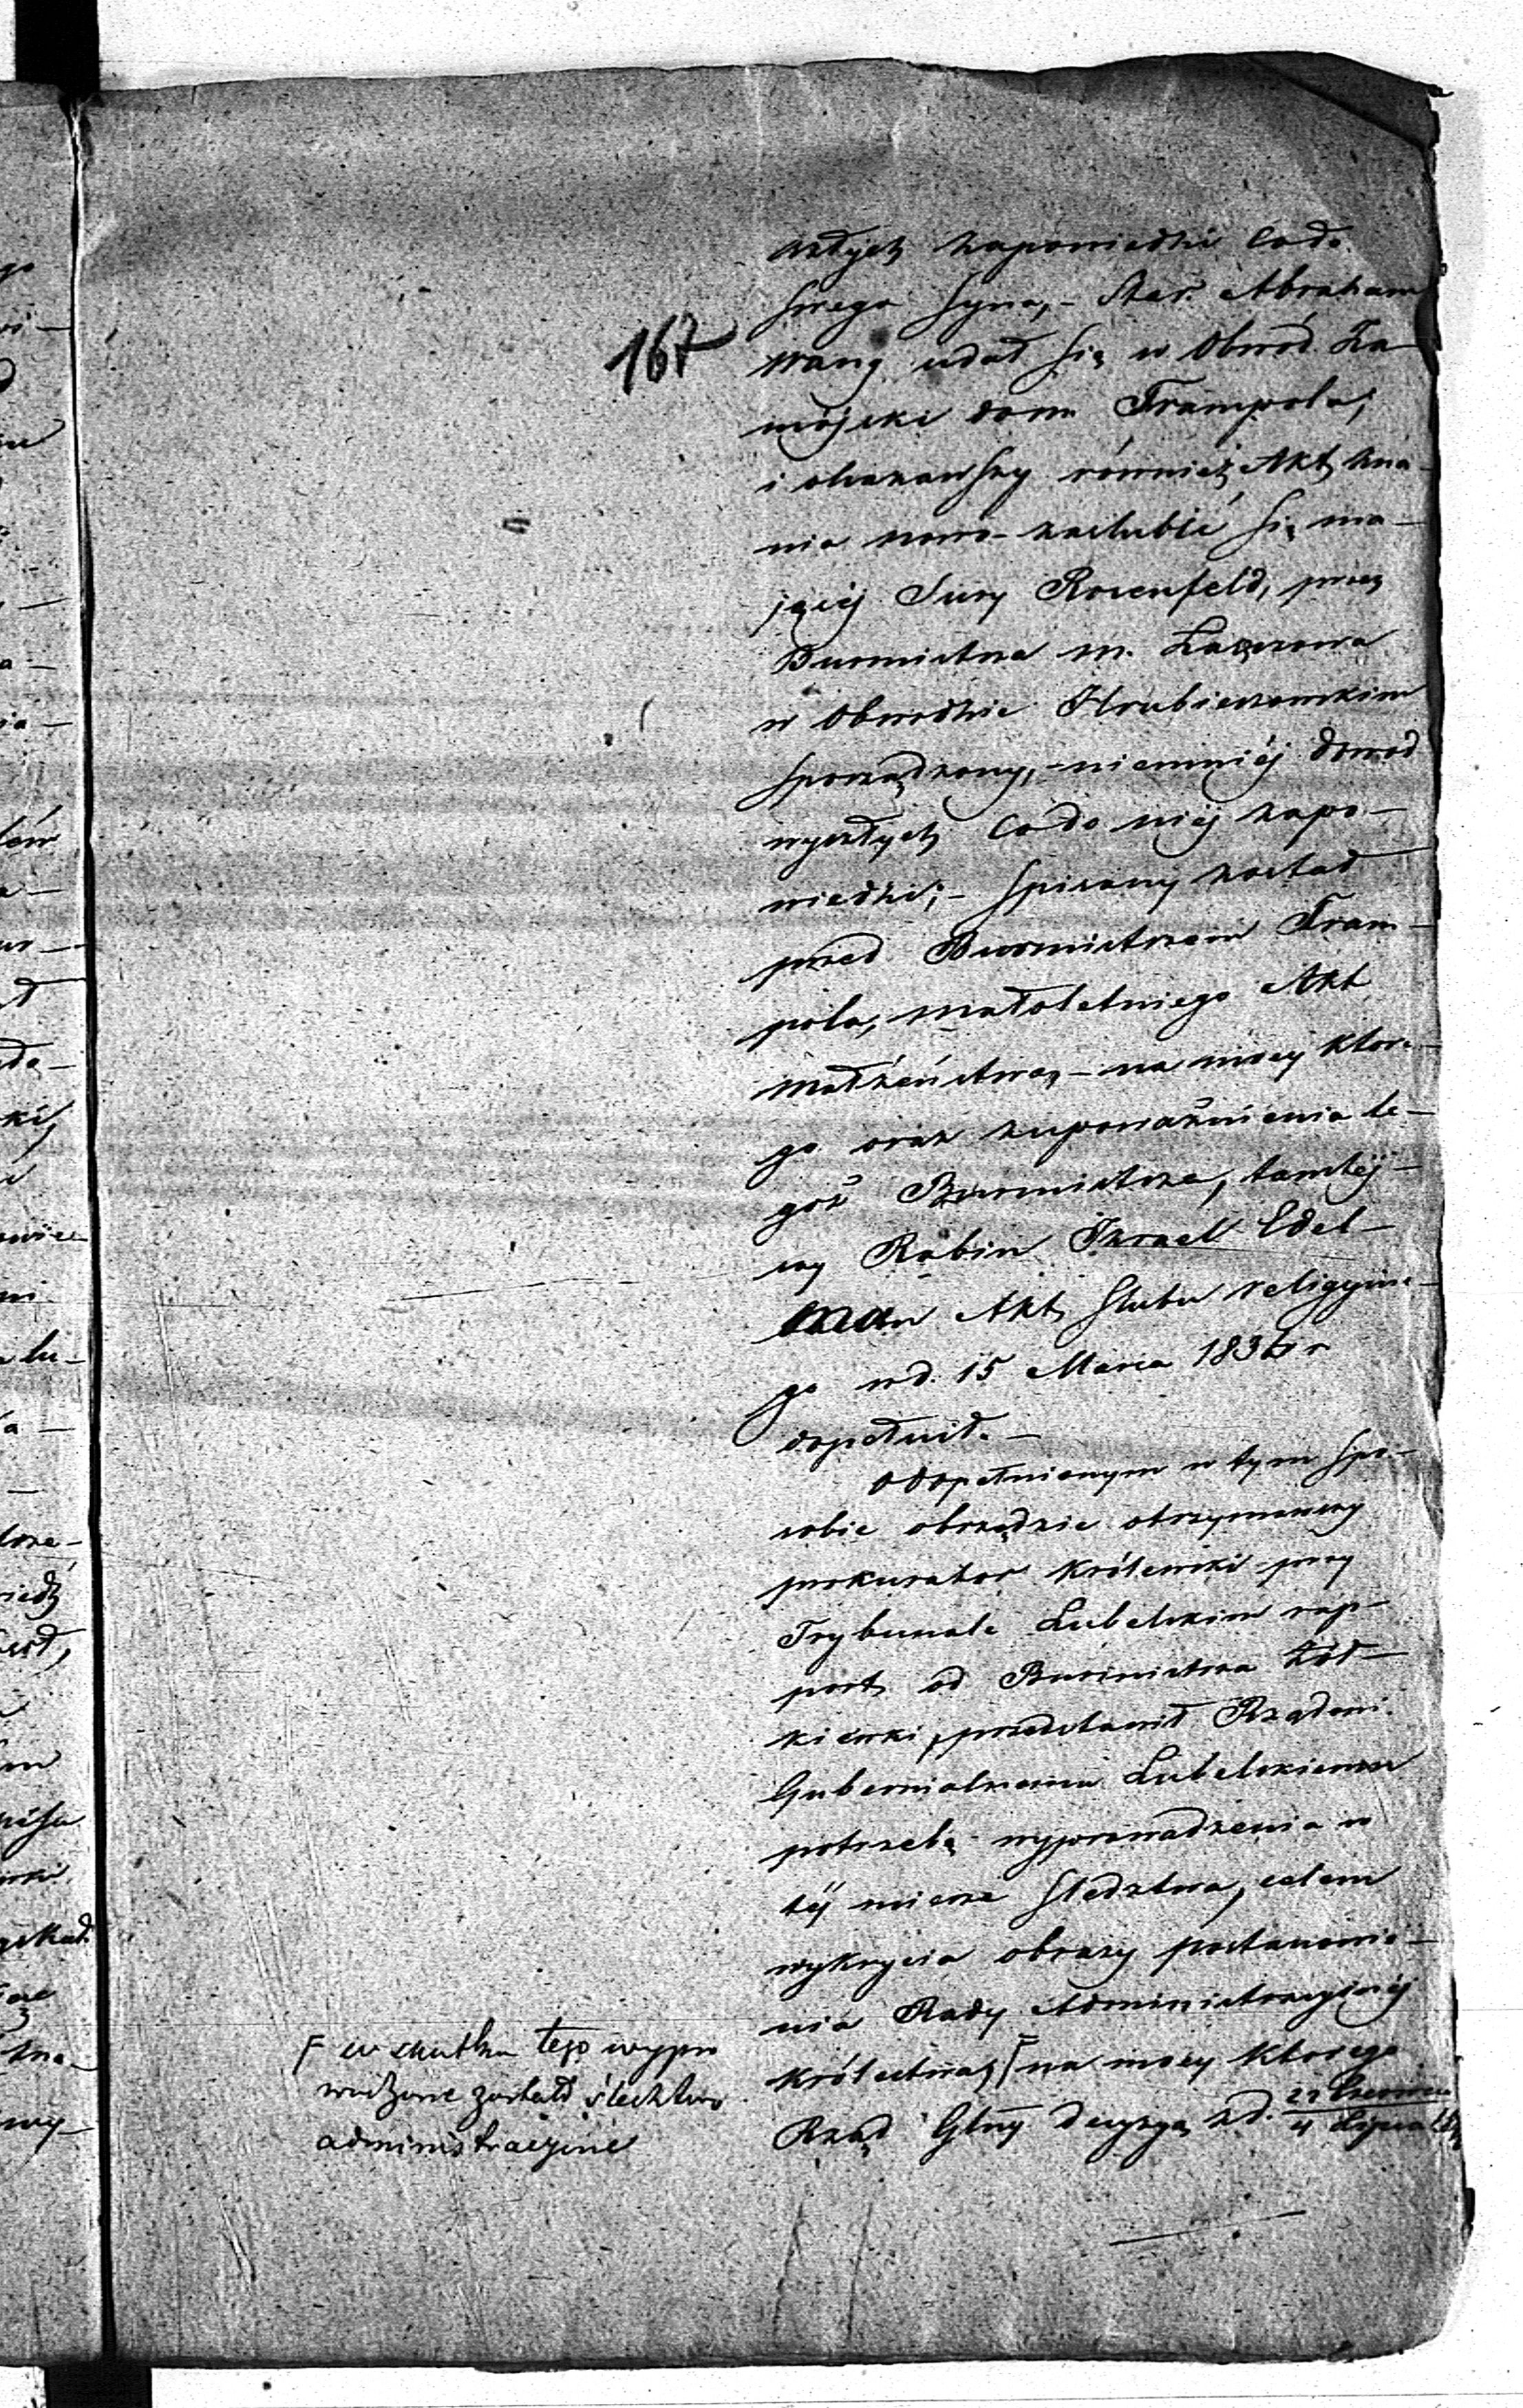 167
szłych zapowiedzi co do
swego syna, – Star. Abraham
Wang udał się w Obwód Za-
mojski dom Frampola,
i okazawszy również Akt zna-
nia nowo-zaślubić się ma-
jącéj Sury Rosenfeld, przez
Burmistrza m. Łaszczowa
w Obwodzie Hrubieszowskim
sporządzony, – niemniéj dowod
wyszłych co do niéj zapo-
wiedzi; – spisany został
przed Burmistrzem Fram-
pola, małoletniego Akt
małżeństwa, – na mocy które-
go oraz zupoważnienia te-
goż Burmistrza, tamtéj-
szy Rabin Izrael Edel-
man Akt ślubu religijne-
go w d. 15 Marca 1836 r
dopełnił. –
O dopełnionym w tym spo-
sobie obrządzie otrzymawszy
prokurator Królewski przy
Trybunale Lubelskim rap-
port od Burmistrza Żół-
kiewki, przedstawił Rządowi
Gubernialnemu Lubelskiemu
potrzebę wyprowadzenia w
téj mierze śledztwa, celem
wykrycia obrazy postanowie-
nia Rady Administracyjnéj
Królestwa, F na mocy którego
Rząd Gbny decyzyą z d. 22 Czerwca
4 Lipca
F w skutku tego wypro
wadzone zostało śledztwo
administracyjne